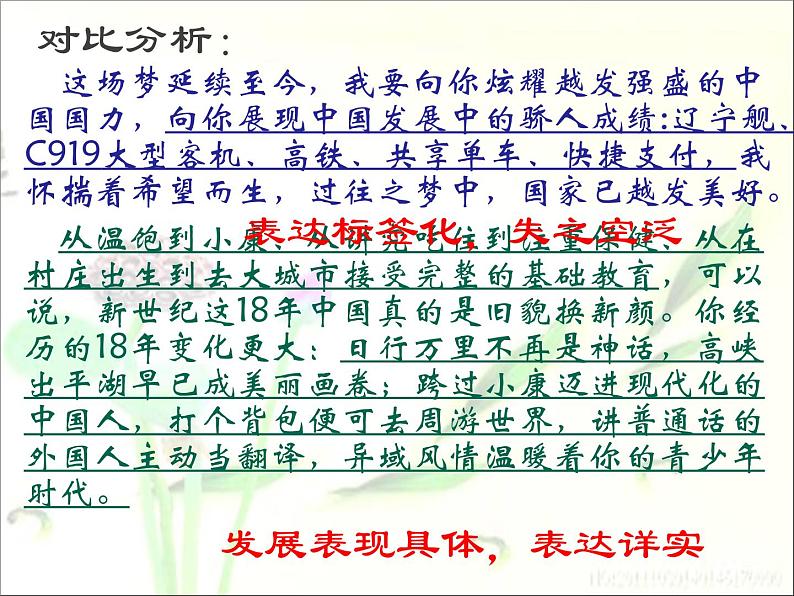 对比分析：
这场梦延续至今，我要向你炫耀越发强盛的中
国国力，向你展现中国发展中的骄人成绩:辽宁舰、
C919大型客机、高铁、共享单车、快捷支付，我
怀揣着希望而生，过往之梦中，国家已越发美好。
表达标签化，失之空泛
从温饱到小康、从讲究吃住到注重保健、从在
村庄出生到去大城市接受完整的基础教育，可以
说，新世纪这18年中国真的是旧貌换新颜。你经
历的18年变化更大：日行万里不再是神话，高峡
出平湖早已成美丽画卷；跨过小康迈进现代化的
中国人，打个背包便可去周游世界，讲普通话的
外国人主动当翻译，异域风情温暖着你的青少年
时代。
发展表现具体，表达详实